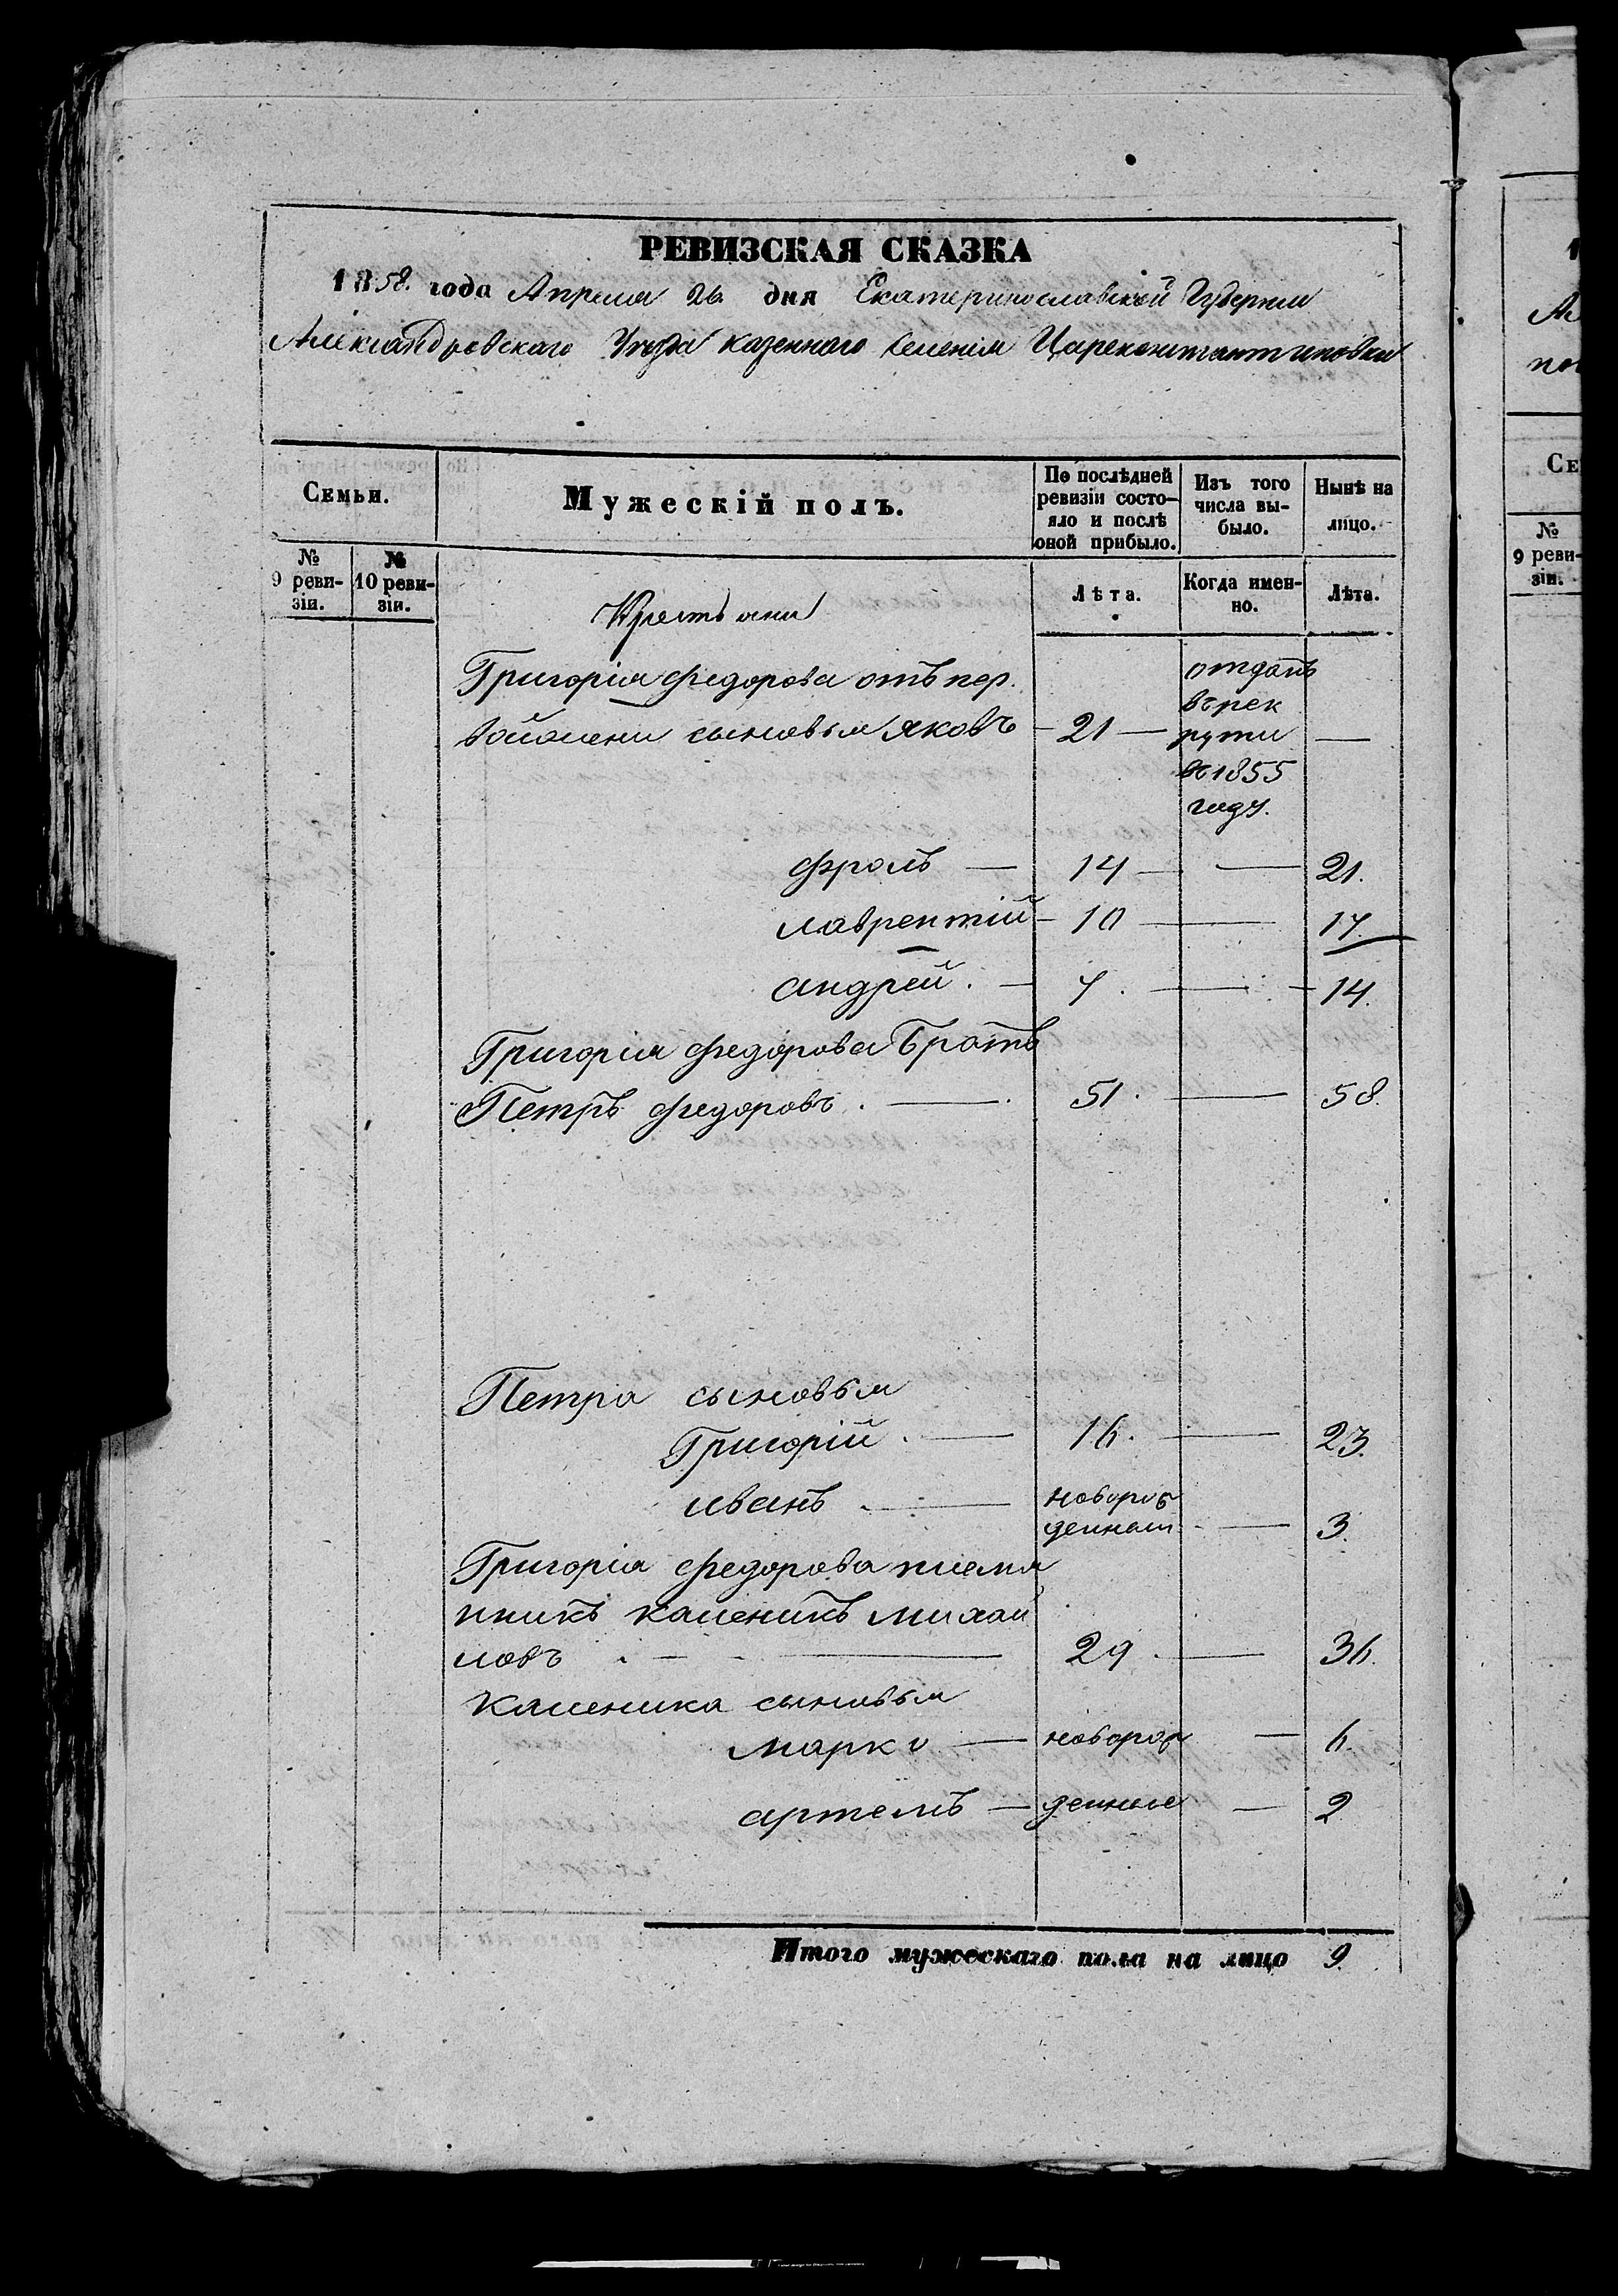 РЕВИЗСКАЯ СКАЗКА
1858. года Апреля 26 дня Екатеринославской Губернии
Александровскаго Уезда казенного селения Цареконстантиновки
Семьи.
Мужескій полъ.
По послѣдней ревизіи состо-
яло и послѣ
оной прибыло.
Изъ того
числа вы-
было.
Нынѣ на
лицо.
№
9 реви-
зіи.
№
10 реви-
зіи.
Крестьяни
Лѣта.
Когда имен-
но.
Лѣта.
Григорія Федорова отъ пер.
вой жени сыновья Яковъ — 21 — отданъ
въ рек
рути
въ 1855
году. —
Фролъ — 14 — — 21.
Лаврентій — 10 — 17.
Андрей. — 7. — — 14.
Григорія Федорова Братъ
Петръ Федоровъ. — 51. — 58.
Петра сыновья
Григорій. — 16. — 23.
Иванъ — новорож
денный — 3.
Григорія Федорова племя
нникъ Каленикъ Михай
ловъ — 29. — 36.
Каленика сыновья
Марко — новорож — 6.
Артемъ — денные — 2
Итого мужескаго пола на лицо 9.
Се
№
9 реви-
зіи.